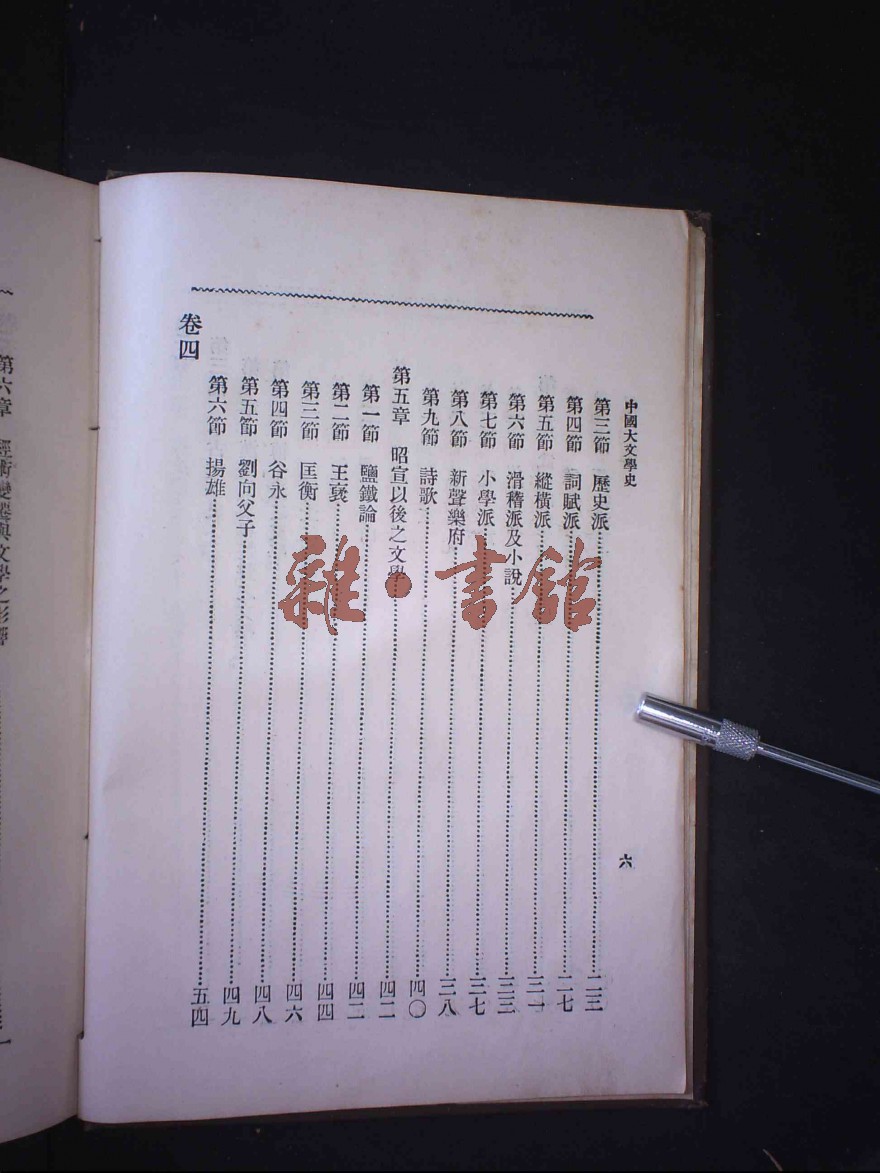 中國大文學史
六
第三節 歷史派 二三
第四節 詞賦派 二七
第五節 縱橫派 三一
第六節 滑稽派及小說 三三
第七節 小學派 三七
第八節 新聲樂府 三八
第九節 詩歌 四〇
第五章 昭宣以後之文學 四二
第一節 鹽鐵論 四二
第二節 王褒 四四
第三節 匡衡 四六
第四節 谷永 四八
第五節 劉向父子 四九
第六節 揚雄 五四
卷四
第六章 經術變遷與文學之影響
雜·書館